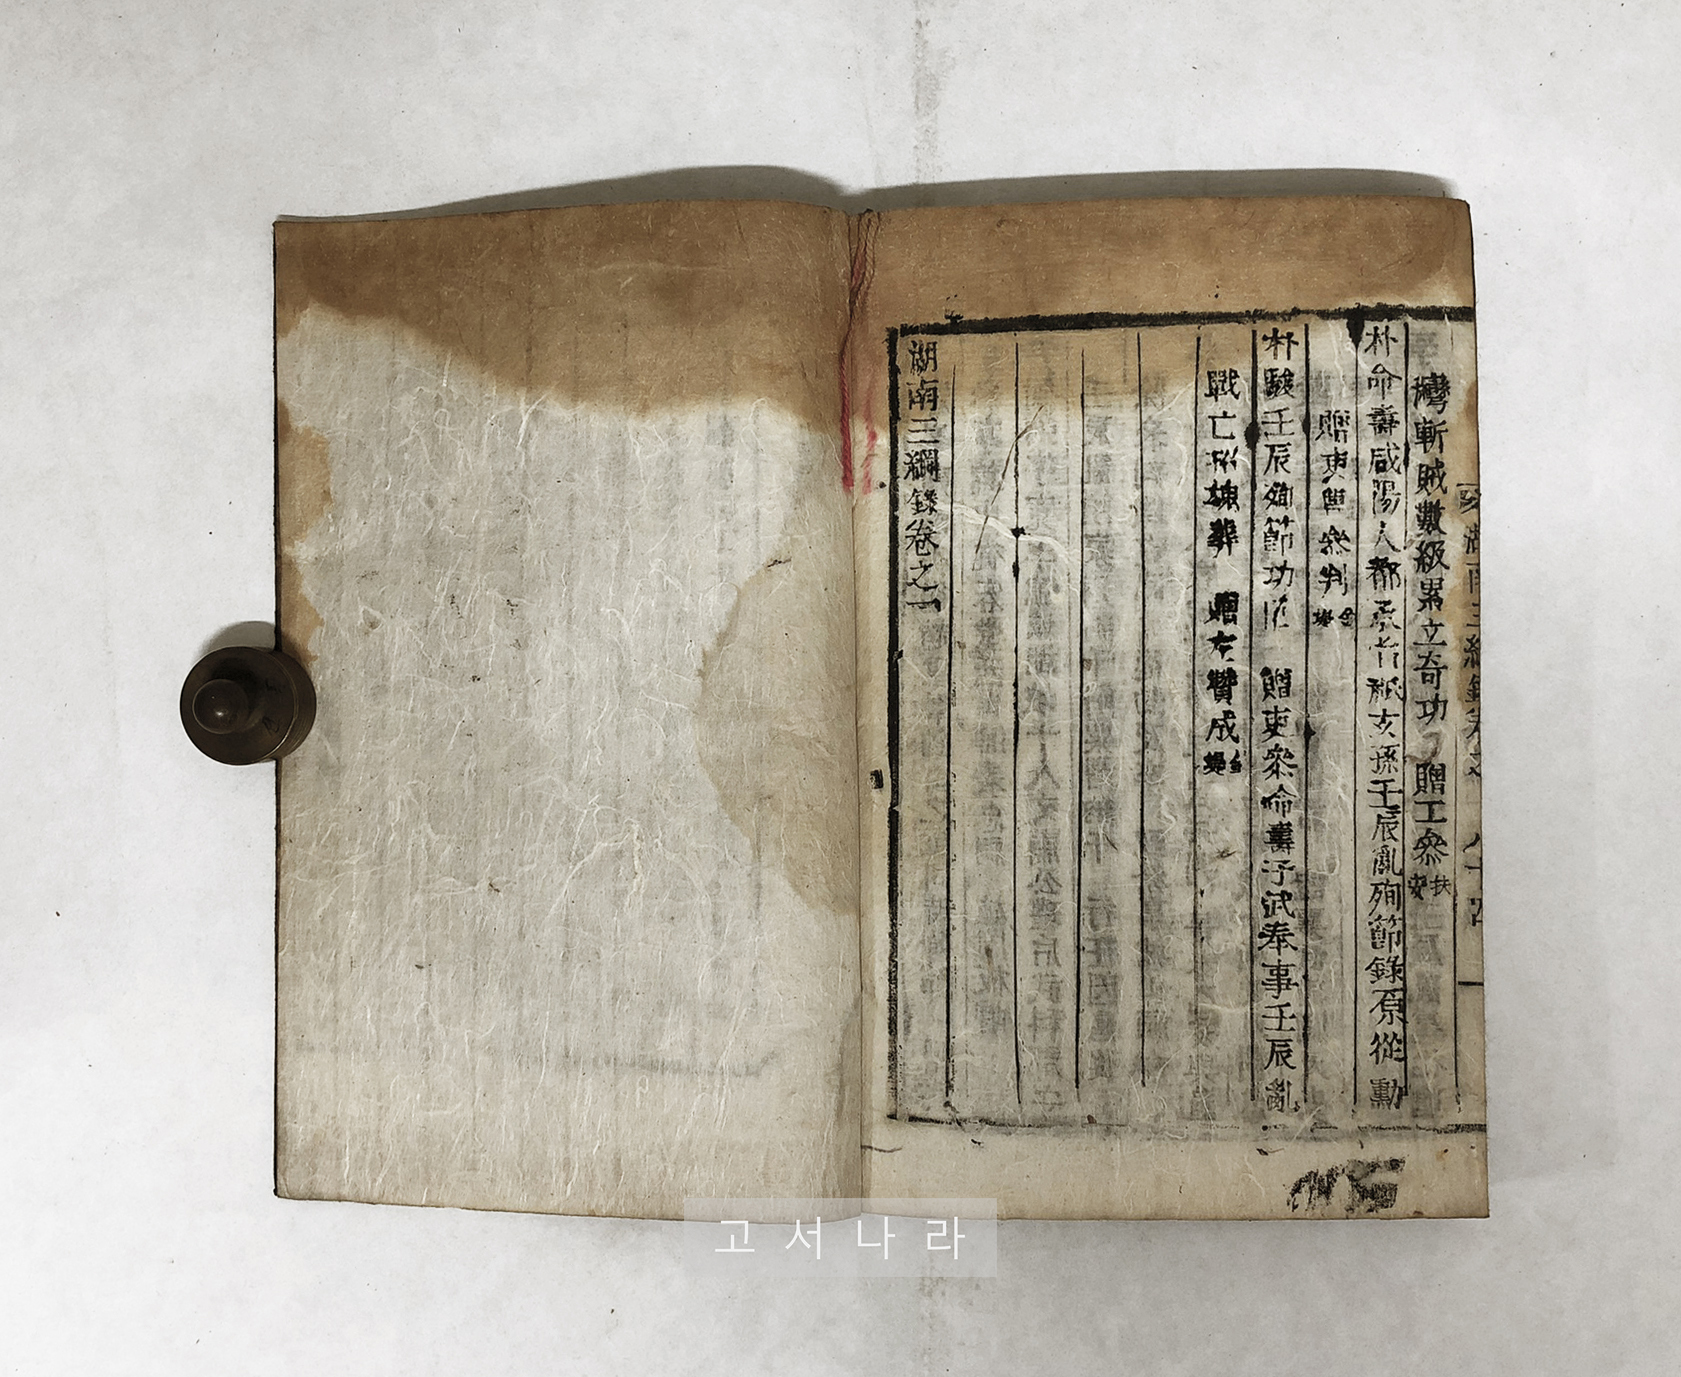 灣斬賊數級累立奇功 贈工參 扶安
朴命壽咸陽人都承旨 玄孫壬辰亂殉節錄原從勳
贈吏曹參判
朴駿壬辰殉節功臣 贈吏參命壽子武奉事壬辰亂
戰亡 葬 贈左贊成
湖南三綱錄卷之一
고서나라